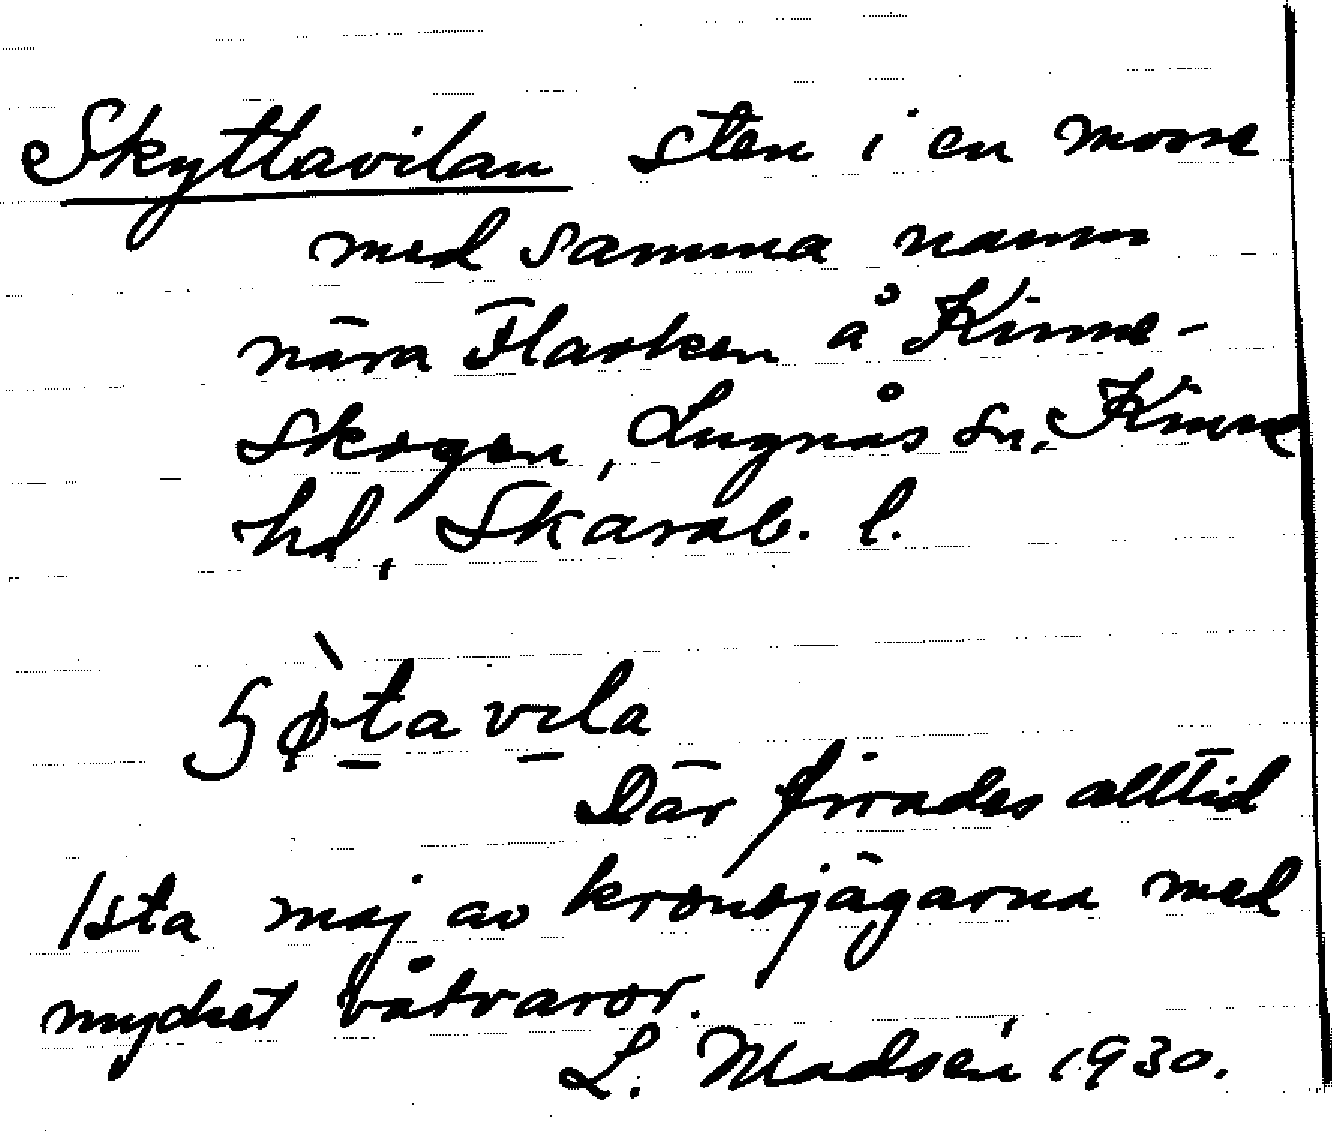 Skyttavilan sten i en mosse
med samma namn
nära Flarken å Kinne-
skogen, Lugnås sn, Kinne
hd, Skarab. l.
ta vila
Där firades alltid
1sta maj av kronojägarna med
mycket våtvaror.
L. Madsén 1930.